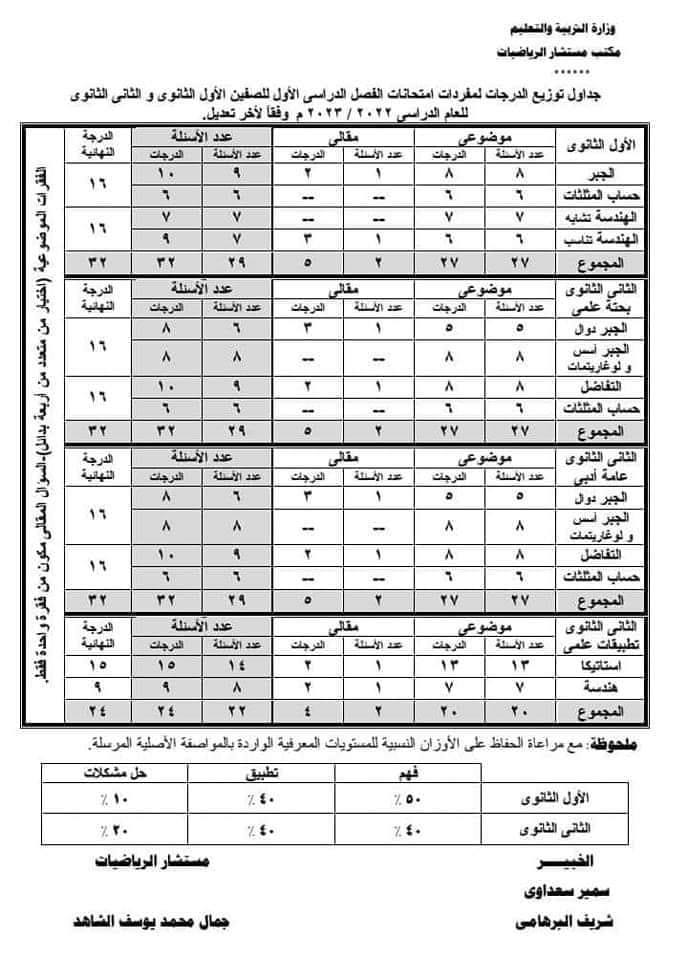 وزارة التربية والتعليم
مكتب مستشار الرياضيات
******
جداول توزيع الدرجات لمفردات امتحانات الفصل الدراسى الأول للصفين الأول الثانوى و الثانى الثانوى
للعام الدراسى ٢٠٢٢ / ٢٠٢٣ م وفقاً لآخر تعديل.
الأول الثانوى موضوعي مقالي عدد الأسئلة الدرجة النهائية
عدد الأسئلة الدرجات عدد الأسئلة الدرجات عدد الأسئلة الدرجات
الجبر ٨ ٨ ١ ٢ ٩ ١٠ ١٦
حساب المثلثات ٦ ٦ -- -- ٦ ٦
الهندسة تشابه ٧ ٧ -- -- ٧ ٧ ١٦
الهندسة تناسب ٦ ٦ ١ ٣ ٧ ٩
المجموع ٢٧ ٢٧ ٢ ٥ ٢٩ ٣٢ ٣٢
الثانى الثانوى بحتة علمى موضوعي مقالي عدد الأسئلة الدرجة النهائية
عدد الأسئلة الدرجات عدد الأسئلة الدرجات عدد الأسئلة الدرجات
الجبر دوال ٥ ٥ ١ ٣ ٦ ٨ ١٦
الجبر أسس و لوغاريتمات ٨ ٨ -- -- ٨ ٨
التفاضل ٨ ٨ ١ ٢ ٩ ١٠ ١٦
حساب المثلثات ٦ ٦ -- -- ٦ ٦
المجموع ٢٧ ٢٧ ٢ ٥ ٢٩ ٣٢ ٣٢
الثانى الثانوى عامة أدبي موضوعي مقالي عدد الأسئلة الدرجة النهائية
عدد الأسئلة الدرجات عدد الأسئلة الدرجات عدد الأسئلة الدرجات
الجبر دوال ٥ ٥ ١ ٣ ٦ ٨ ١٦
الجبر أسس و لوغاريتمات ٨ ٨ -- -- ٨ ٨
التفاضل ٨ ٨ ١ ٢ ٩ ١٠ ١٦
حساب المثلثات ٦ ٦ -- -- ٦ ٦
المجموع ٢٧ ٢٧ ٢ ٥ ٢٩ ٣٢ ٣٢
الثانى الثانوى تطبيقات علمى موضوعي مقالي عدد الأسئلة الدرجة النهائية
عدد الأسئلة الدرجات عدد الأسئلة الدرجات عدد الأسئلة الدرجات
استاتيكا ١٣ ١٣ ١ ٢ ١٤ ١٥ ١٥
هندسة ٧ ٧ ١ ٢ ٨ ٩ ٩
المجموع ٢٠ ٢٠ ٢ ٤ ٢٢ ٢٤ ٢٤
الفقرات الموضوعية (اختيار من متعدد من أربعة بدائل)-السؤال المقالى مكون من فقرة واحدة فقط.
ملحوظة: مع مراعاة الحفاظ على الأوزان النسبية للمستويات المعرفية الواردة بالمواصفة الأصلية المرسلة.
فهم تطبيق حل مشكلات
الأول الثانوى ٥٠ ٪ ٤٠ ٪ ١٠ ٪
الثانى الثانوى ٤٠ ٪ ٤٠ ٪ ٢٠ ٪
الخبيـــر مستشار الرياضيات
سمير سعداوى
شريف البرهامى جمال محمد يوسف الشاهد